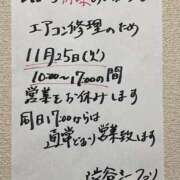 エアコン修理のため
11月25日(火)
10:00〜17:00の間
営業をお休みします
同日17:00からは
通常どおり営業致します
渋谷